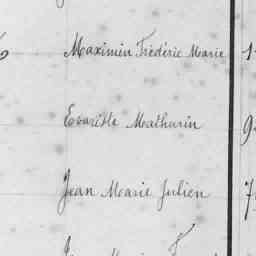 Maximin Frédéric Marie
Evariste Mathurin
Jean Marie Julien